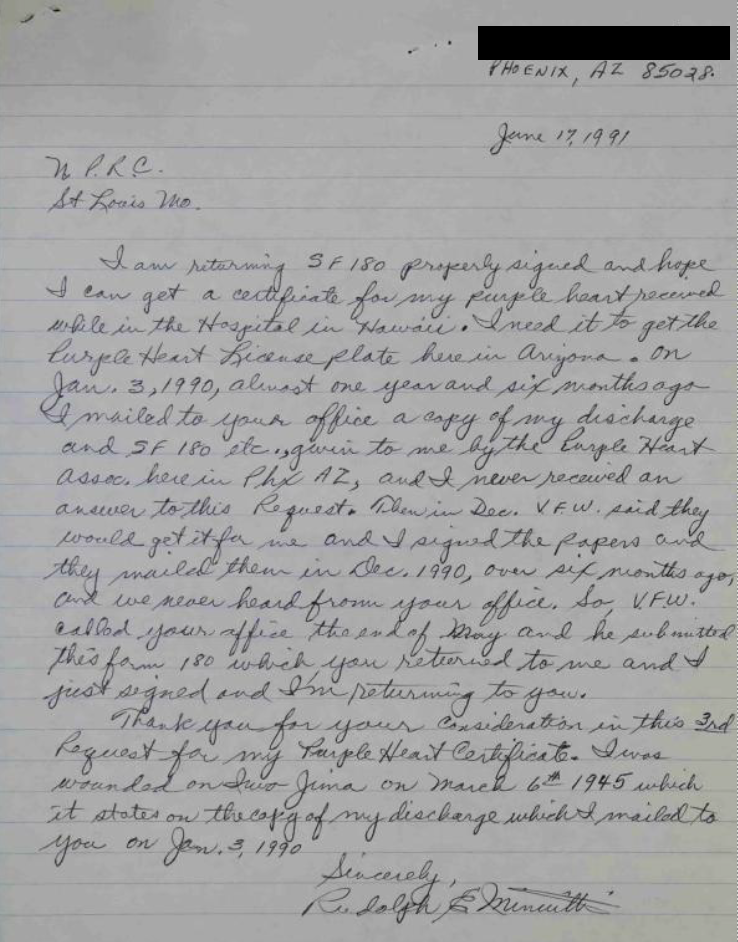 PHOENIX, AZ 85028.
June 17, 1991
N P.R.C.
St Louis Mo.
I am returning SF 180 properly signed and hope
I can get a certificate for my purple heart received
while in the Hospital in Hawaii. I need it to get the
Purple Heart License plate here in Arizona. On
Jan. 3, 1990, almost one year and six months ago
I mailed to your office a copy of my discharge
and SF 180 etc., givin to me by the Purple Heart
Assoc. here in Phx AZ, and I never received an
answer to this Request. Then in Dec. V.F.W. said they
would get it for me and I signed the papers and
they mailed them in Dec. 1990, over six months ago,
and we never heard from your office. So, V.F.W.
called your office the end of May and he submitted
this form 180 which you returned to me and I
just signed and I'm returning to you.
Thank you for your consideration in this 3rd
Request for my Purple Heart Certificate. I was
wounded on Iwo Jima on March 6th 1945 which
it states on the copy of my discharge which I mailed to
you on Jan. 3, 1990
Sincerely,
Rudolph E